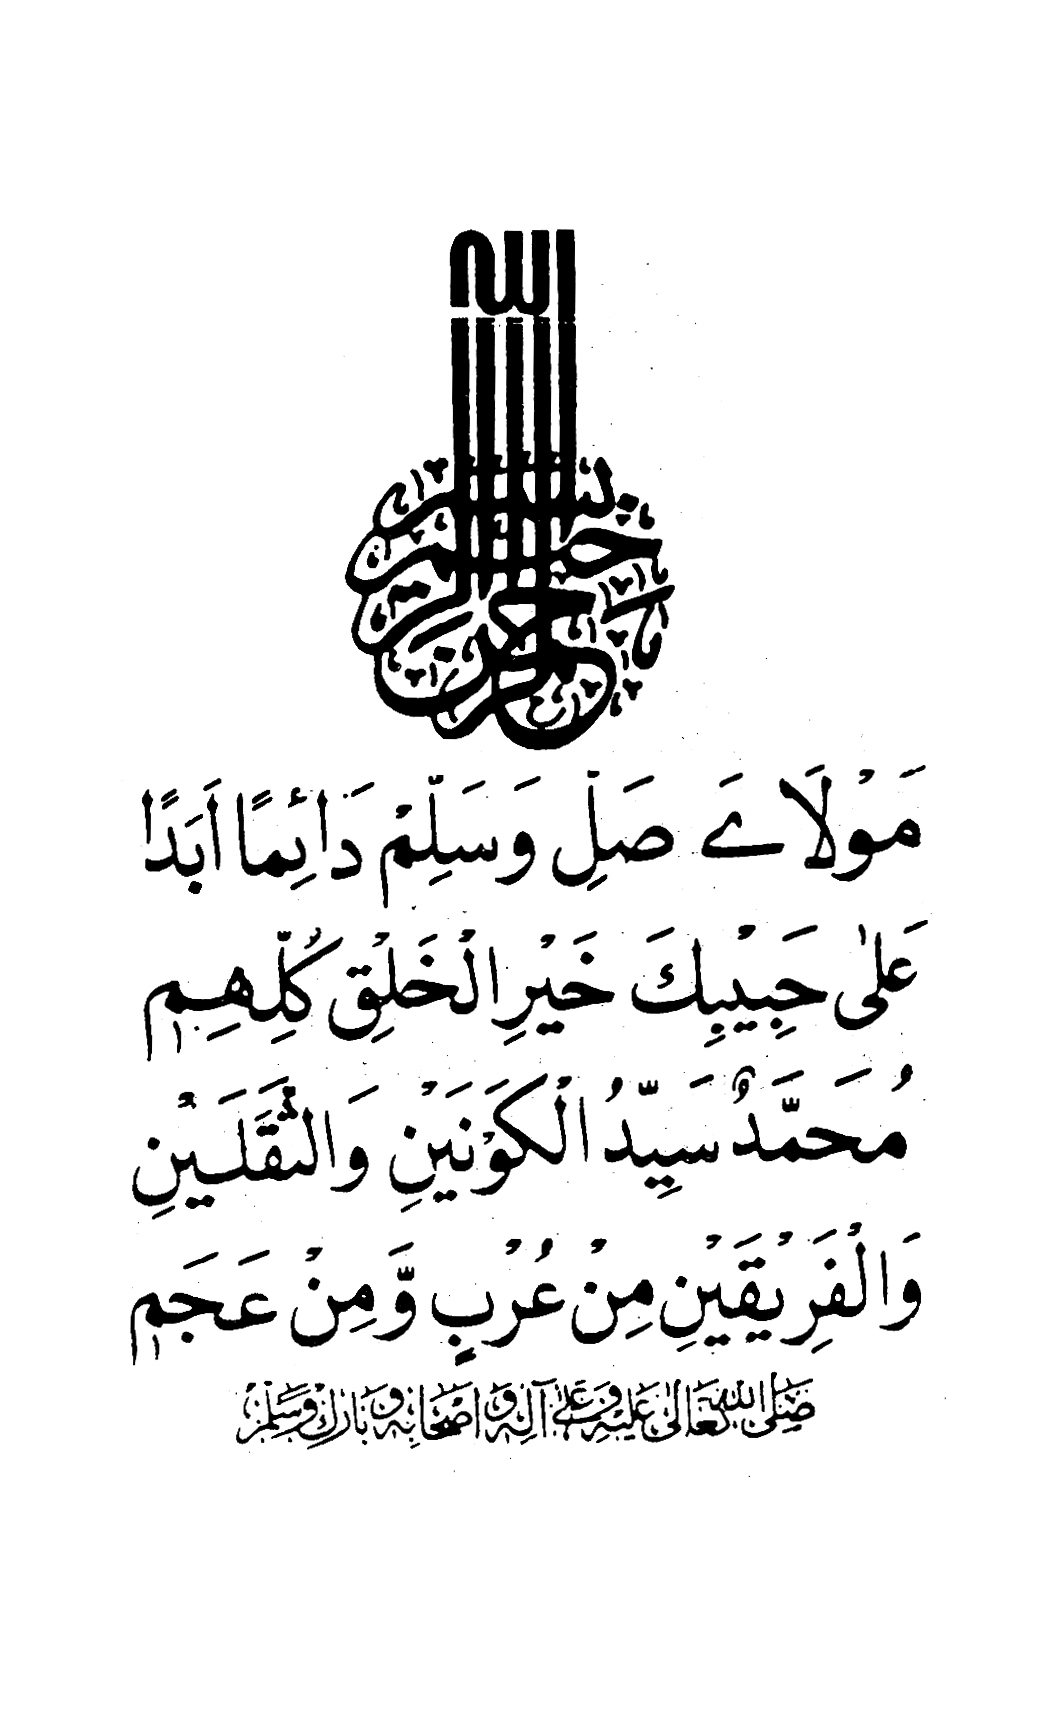 بِسْمِ اللهِ الرَّحْمٰنِ الرَّحِيْمِ
مَوْلَاےَ صَلِّ وَسَلِّمْ دَائِمًا اَبَدًا
عَلٰى حَبِيْبِكَ خَيْرِ الْخَلْقِ كُلِّهِمٖ
مُحَمَّدٌ سَيِّدُ الْكَوْنَيْنِ وَالثَّقَلَيْنِ
وَالْفَرِيْقَيْنِ مِنْ عُرْبٍ وَّمِنْ عَجَمٖ
صَلَّى اللهُ تَعَالٰى عَلَيْهِ وَعَلٰى آلِهٖ وَاَصْحَابِهٖ وَبَارَكَ وَسَلَّمْ